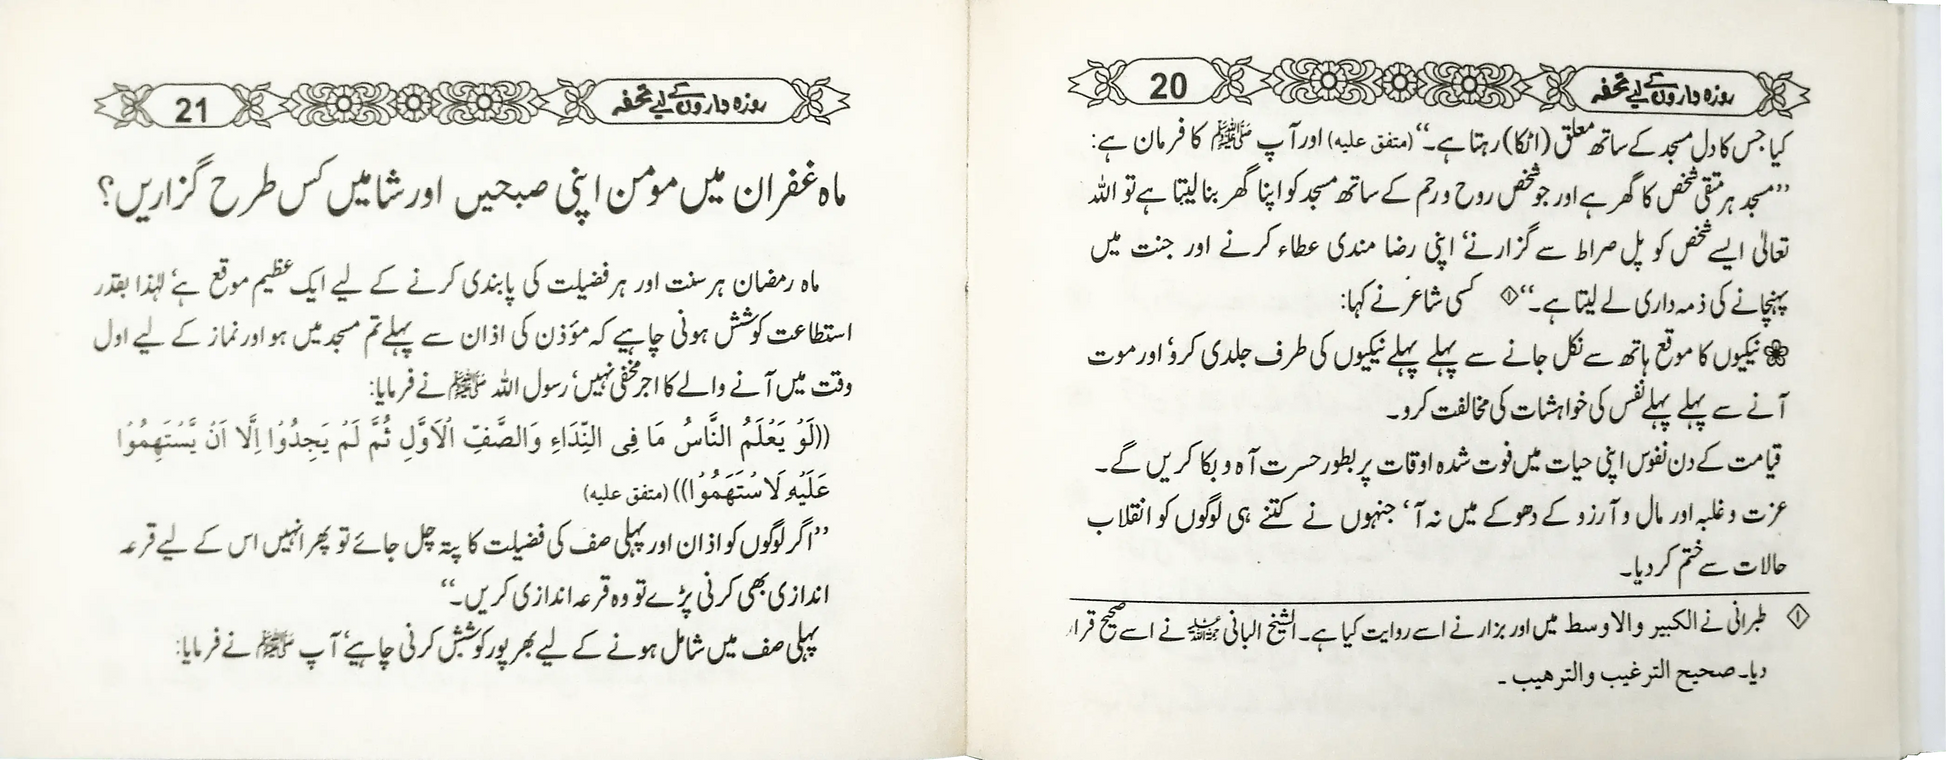 روزہ داروں کے لیے تحفہ 20
کیا جس کا دل مسجد کے ساتھ معلق (اٹکا) رہتا ہے۔‘‘ (متفق علیہ) اور آپ ﷺ کا فرمان ہے:
’’مسجد ہر متقی شخص کا گھر ہے اور جو شخص روح و رحم کے ساتھ مسجد کو اپنا گھر بنا لیتا ہے تو اللہ
تعالیٰ ایسے شخص کو پل صراط سے گزارنے‘ اپنی رضا مندی عطاء کرنے اور جنت میں
پہنچانے کی ذمہ داری لے لیتا ہے۔‘‘ ① کسی شاعر نے کہا:
❀ نیکیوں کا موقع ہاتھ سے نکل جانے سے پہلے پہلے نیکیوں کی طرف جلدی کرو‘ اور موت
آنے سے پہلے پہلے نفس کی خواہشات کی مخالفت کرو۔
قیامت کے دن نفوس اپنی حیات میں فوت شدہ اوقات پر بطور حسرت آہ و بکا کریں گے۔
عزت و غلبہ اور مال و آرزو کے دھوکے میں نہ آ‘ جنہوں نے کتنے ہی لوگوں کو انقلاب
حالات سے ختم کر دیا۔
① طبرانی نے الکبیر والاوسط میں اور بزار نے اسے روایت کیا ہے۔ الشیخ البانی رحمہ اللہ نے اسے صحیح قرار
دیا۔ صحیح الترغیب والترھیب۔
روزہ داروں کے لیے تحفہ 21
ماہ غفران میں مومن اپنی صبحیں اور شامیں کس طرح گزاریں؟
ماہ رمضان ہر سنت اور ہر فضیلت کی پابندی کرنے کے لیے ایک عظیم موقع ہے‘ لہٰذا بقدر
استطاعت کوشش ہونی چاہیے کہ مؤذن کی اذان سے پہلے تم مسجد میں ہو اور نماز کے لیے اول
وقت میں آنے والے کا اجر مخفی نہیں‘ رسول اللہ ﷺ نے فرمایا:
((لَوْ يَعْلَمُ النَّاسُ مَا فِى النِّدَاءِ وَالصَّفِّ الْاَوَّلِ ثُمَّ لَمْ يَجِدُوْا اِلَّا اَنْ يَّسْتَهِمُوْا
عَلَيْهِ لَاسْتَهَمُوْا)) (متفق علیہ)
’’اگر لوگوں کو اذان اور پہلی صف کی فضیلت کا پتہ چل جائے تو پھر انہیں اس کے لیے قرعہ
اندازی بھی کرنی پڑے تو وہ قرعہ اندازی کریں۔‘‘
پہلی صف میں شامل ہونے کے لیے بھرپور کوشش کرنی چاہیے‘ آپ ﷺ نے فرمایا: